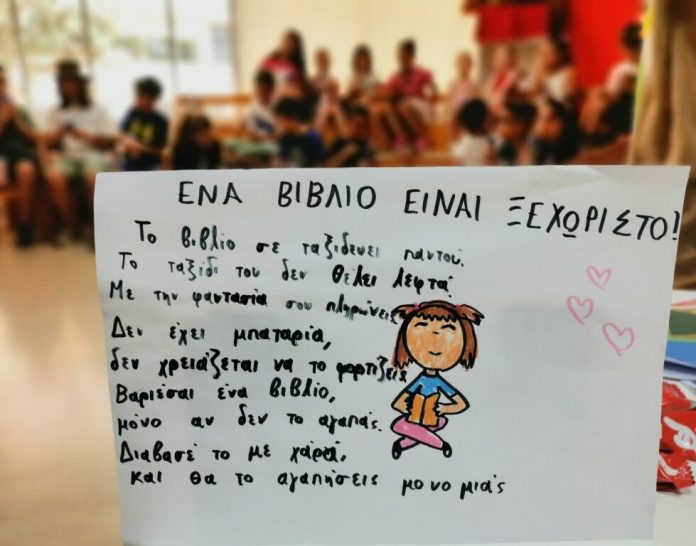 ΕΝΑ ΒΙΒΛΙΟ ΕΙΝΑΙ ΞΕΧΩΡΙΣΤΟ!
Το βιβλίο σε ταξιδεύει παντού.
Το ταξίδι του δεν θέλει λεφτά.
Με την φαντασία σου πληρώνεις
Δεν έχει μπαταρία,
δεν χρειάζεται να το φορτίζεις
Βαριέσαι ένα βιβλίο,
μόνο αν δεν το αγαπάς.
Διάβασέ το με χαρά,
και θα το αγαπήσεις μονομιάς